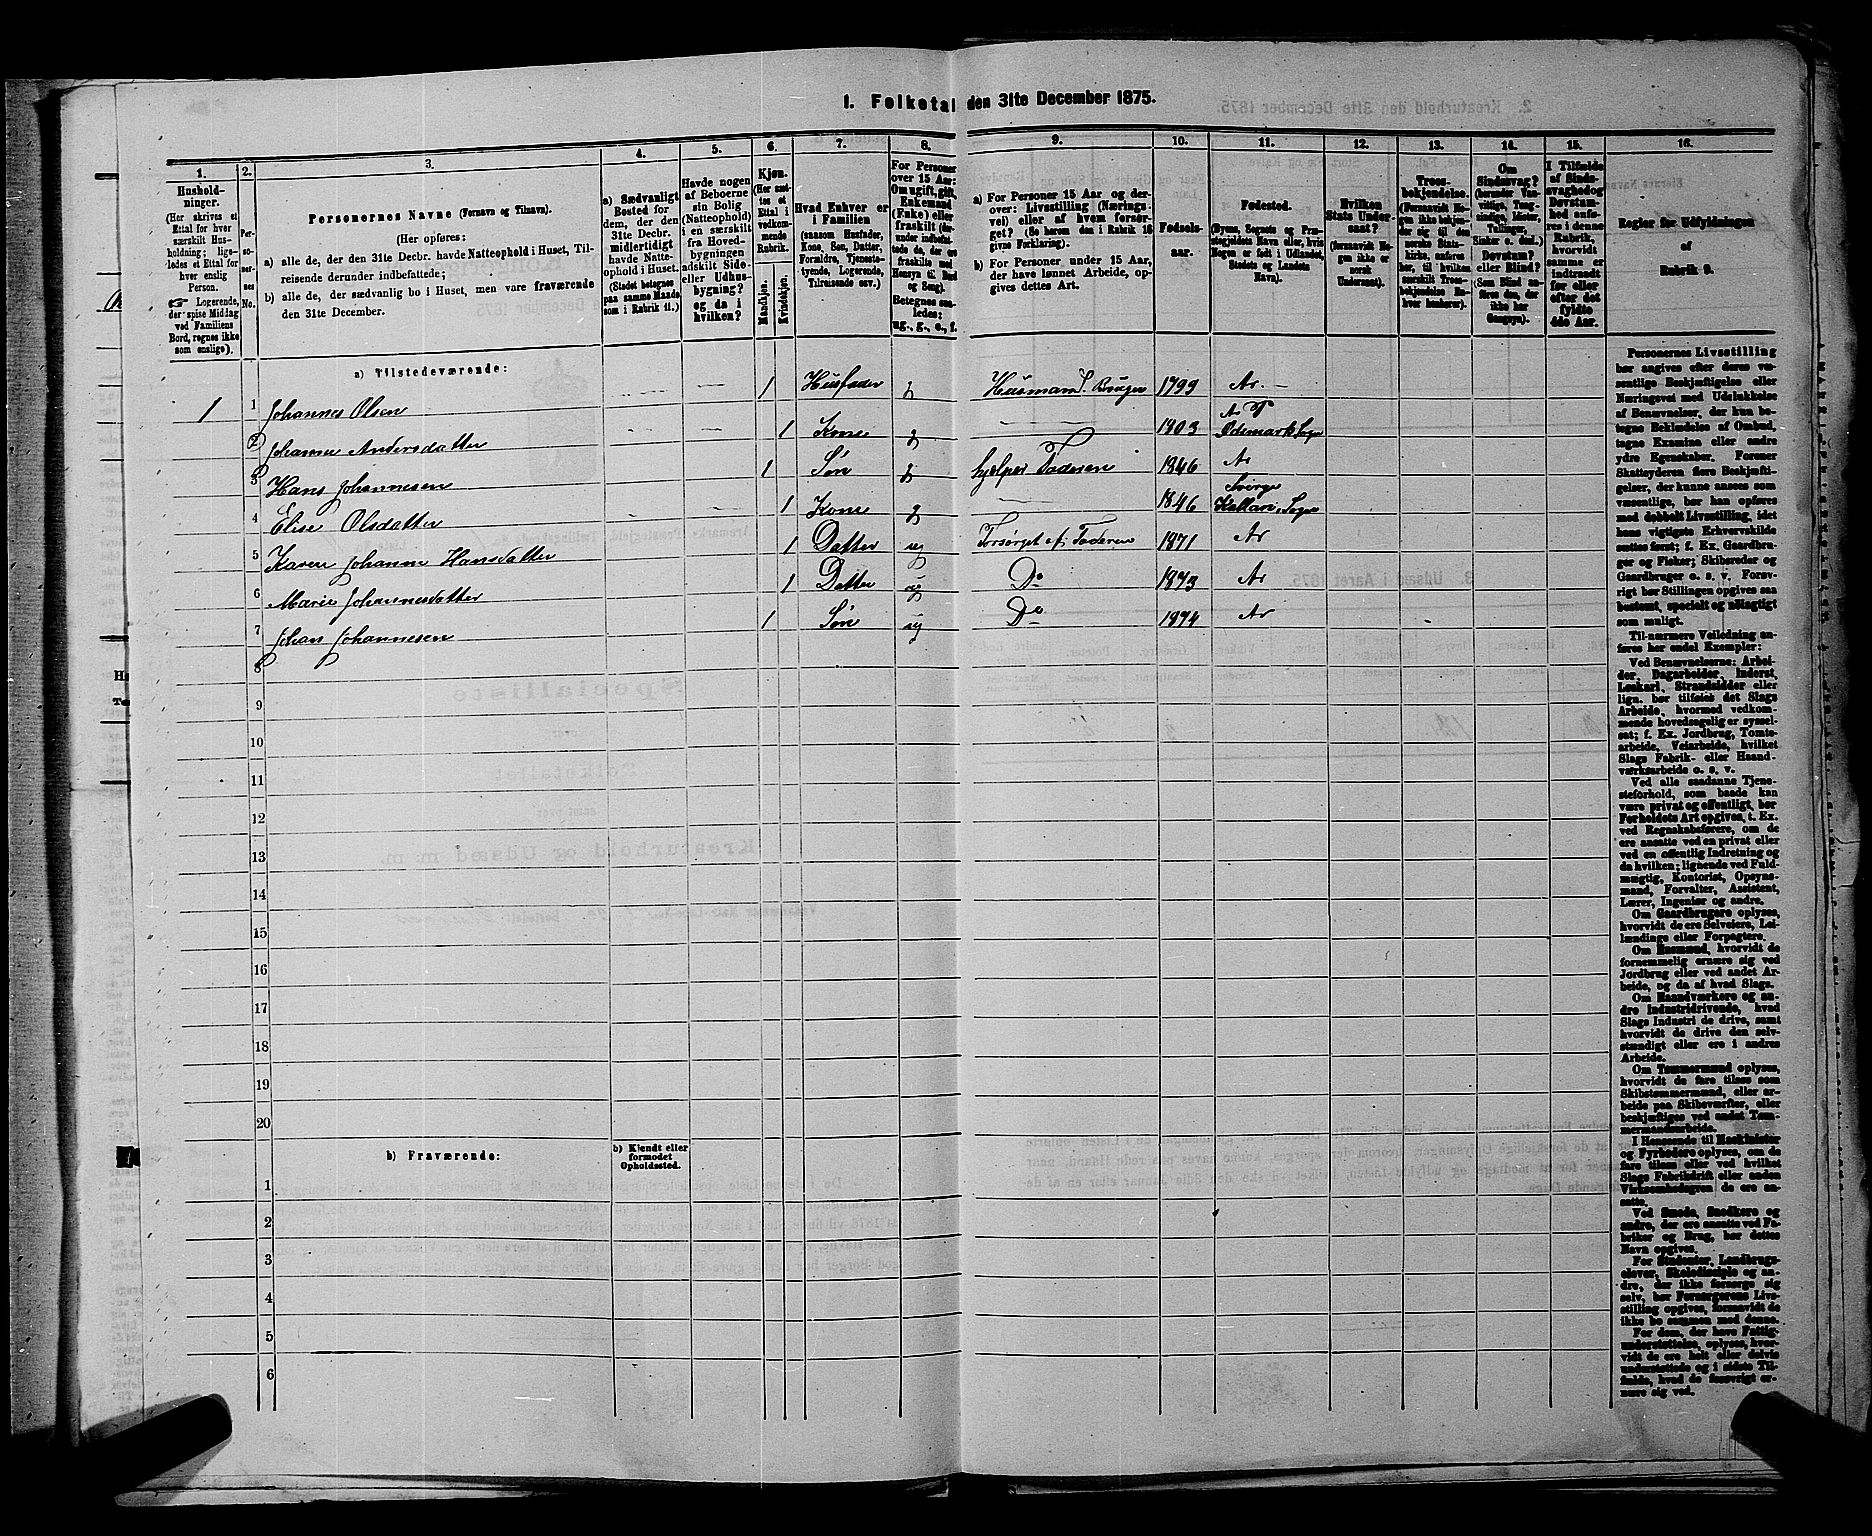 1. Folketal den 31te December 1875.
1. 2. 3. 4. 5. 6. 7. 8. 9. 10. 11. 12. 13. 14. 15. 16.
Husholdninger.
(Her skrives et
Ettal for hver
særskilt Husholdning;
ligeledes et Ettal for
hver enslig
Person.
☞ Logerende,
der spise Middag
ved Familiens
Bord, regnes ikke
som enslige).
Personernes No.
Personernes Navne (Fornavn og Tilnavn).
(Her opføres:
a) alle de, der den 31te Decbr. havde Natteophold i Huset, Tilreisende derunder indbefattede;
b) alle de, der sædvanlig bo i Huset, men vare fraværende
den 31te December.
a) Sædvanligt
Bosted for
dem, der den
31te Decbr.
midlertidigt
havde Natteophold i Huset.
(Stedet betegnes
paa samme Maade
som i Rubrik 11.)
Havde nogen
af Beboerne
sin Bolig
(Natteophold)
i en særskilt
fra Hovedbygningen
adskilt Side-
eller Udhusbygning?
og da i
hvilken?
Kjøn.
(Her sættes et
Ettal i
vedkommende
Rubrik.
Mandkjøn.
Kvindekjøn.
Hvad Enhver er
i Familien
(saasom Husfader,
Kone, Søn, Datter,
Forældre, Tjenestetyende, Logerende,
Tilreisende osv.)
For Personer
over 15 Aar:
Om ugift, gift,
Enkemand
(Enke) eller
fraskilt
Betegnes saaledes:
ug., g., e., f.
a) For Personer 15 Aar og derover: Livsstilling (Næringsvei) eller af hvem forsørget? (Se herom den i Rubrik 16
givne Forklaring).
b) For Personer under 15 Aar,
der have lønnet Arbeide, opgives dettes Art.
Fødselsaar.
Fødested.
(Byens, Sognets og Præstegjeldets Navn eller, hvis
Nogen er født i Udlandet,
Stedets og Landets
Navn).
Hvilken
Stats Undersaat?
(forsaavidt Nogen ikke er
norsk
Undersaat).
Troesbekjendelse.
(Forsaavidt Nogen ikke bekjender sig til den
norske Statskirke, anføres
her, til hvilken
særskilt Troesbekjendelse Enhver henhører).
Om
Sindssvag?
Døvstum?
eller Blind?
(Som Blind anføres den, der
ikke har
Gangsyn).
I Tilfælde
af Sindssvaghed og
Døvstumhed anføres i denne
Rubrik,
hvorvidt
samme er
indtraadt
før eller
efter det
fyldte
4de Aar.
Regler for Udfyldningen
af
Rubrik 9.
a) Tilstedeværende:
1 1 Johannes Olsen 1 Husfader g Husmand S. Bruger 1799 Ar.
2 Johanne Andersdatter 1 Kone g 1803 Ar P Ødemark Sogn
3 Hans Johannesen 1 Søn g hjelper Faderen 1846 Ar
4 Elise Olsdatter 1 Kone g 1846 Sverge Sogn
5 Karen Johanne Hansdatter 1 Datter ug Forsørget af Faderen 1871 Ar
6 Marie Johannesdatter 1 Datter ug Do 1873 Ar
7 Johan Johannesen 1 Søn ug Do 1874 Ar
8
9
10
11
12
13
14
15
16
17
18
19
20
b) Fraværende:
b) Kjendt eller
formodet
Opholdssted.
1
2
3
4
5
6
Personernes Livsstilling
bør angives efter deres væsentlige Beskjæftigelse eller
Næringsvei med Udelukkelse
af Benævnelser, der kun betegne Beklædelse af Ombud,
tagne Examina eller andre
ydre Egenskaber. Forener
Skatteyderen flere Beskjæftigelser, der kunne ansees som
væsentlige, bør han opføres
med dobbelt Livsstilling, idet
hans vigtigste Erhvervskilde
sættes først; f. Ex. Gaardbruger og Fisker; Skibsreder og
Gaardbruger o. s. v. Forøvrigt bør Stillingen opgives saa
bestemt, specielt og nøiagtigt
som muligt.
Til nærmere Veiledning anføres her endel Exempler:
Ved Benævnelserne: Arbeider, Dagarbeider, Inderst,
Løskarl, Strandsidder eller
lign. bør tilføies det Slags
Arbeide, hvormed vedkommende hovedsagelig er sysselsat; f. Ex. Jordbrug, Tomtearbeide, Veiarbeide, hvilket
Slags Fabrik- eller Haandværksarbeide o. s. v.
Ved alle saadanne Tjenesteforhold, som baade kan
være privat og offentligt, bør
Forholdets Art opgives, t. Ex.
ved Regnskabsførere, om de
ere ansatte ved en privat eller
ved en offentlig Indretning og
da hvilken; lignende ved Fuldmægtig, Kontorist, Opsynsmand, Forvalter, Assistent,
Lærer, Ingeniør og andre.
Om Gaardbrugere oplyses,
hvorvidt de ere Selveiere, Leilændinge eller Forpagtere.
Om Husmænd, hvorvidt de
fornemmelig ernære sig ved
Jordbrug eller ved andet Arbeide, og da af hvad Slags.
Om Haandværkere og andre Industridrivende, hvad
Slags Industri de drive, samt
hvorvidt de drive den selvstændigt eller ere i andres
Arbeide.
Om Tømmermænd oplyses,
hvorvidt de fare tilsøs som
Skibstømmermænd, eller arbeide paa Skibsværfter, eller
beskjæftiges ved andet Tømmermandsarbeide.
I Henseende til Maskinister
og Fyrbødere oplyses, om de
fare tilsøs eller ved hvilket
Slags Fabrikdrift eller anden
Virksomhed de ere ansatte.
Ved Smede, Snedkere og
andre, der ere ansatte ved Fabriker og Brug, bør dettes
Navn opgives.
For Studenter, Landbrugselever, Skoledisciple og andre, der ikke forsørge sig
selv, bør Forsørgerens Livsstilling opgives, forsaavidt de
ikke bo sammen med denne.
For dem, der have Fattigunderstøttelse, oplyses, hvorvidt de ere helt eller delvis
understøttede og i sidste Tilfælde, hvad de forøvrigt ernære sig ved.